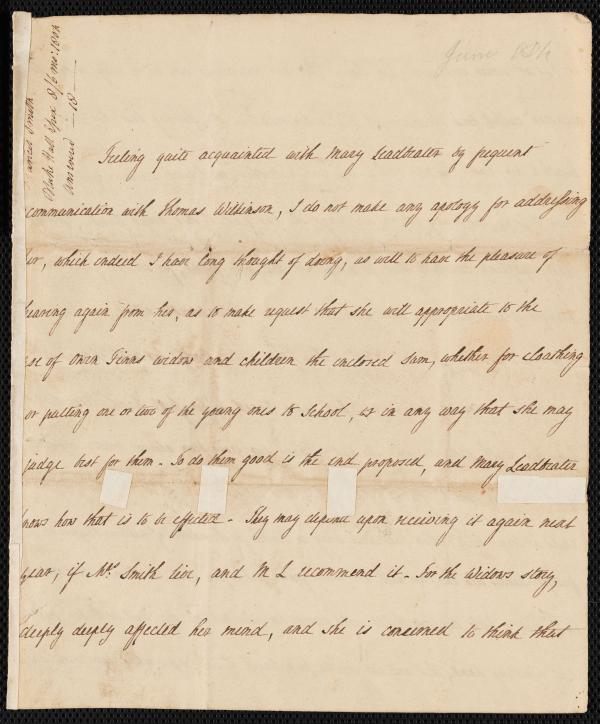 June
Smith
Hall 8/6 mo: 1804
Answered 18
Feeling quite acquainted with Mary Leadbeater by frequent
communication with Thomas Wilkinson, I do not make any apology for addressing
her, which indeed I have long thought of doing, as well to have the pleasure of
hearing again from her, as to make request that she will appropriate to the
use of Owen Finns widow and children the enclosed sum, whether for cloathing
or putting one or two of the young ones to School, or in any way that she may
judge best for them - To do them good is the end proposed, and Mary Leadbeater
knows how that is to be effected - They may depend upon receiving it again next
year, if Mrs. Smith live, and M L recommend it - For the Widows story,
deeply deeply affected her mind, and she is concerned to think that